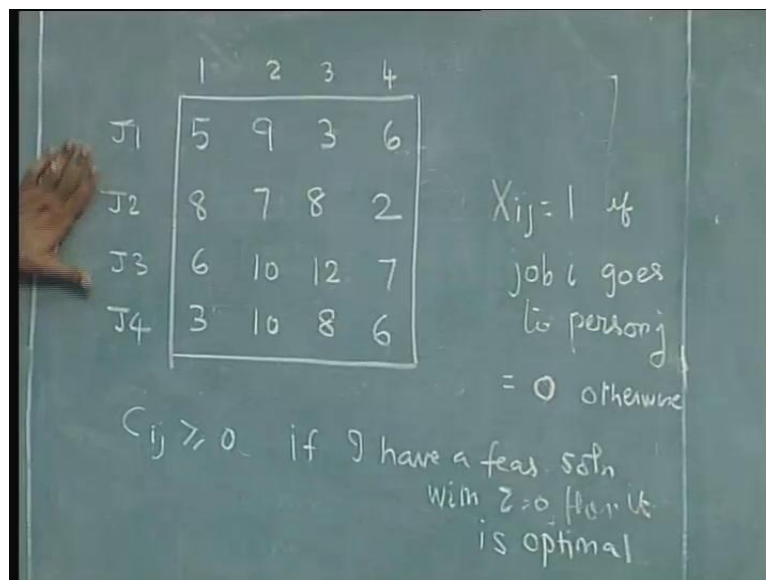 1 2 3 4
J1 5 9 3 6
J2 8 7 8 2
J3 6 10 12 7
J4 3 10 8 6
Xij = 1 if
job i goes
to person j
= 0 otherwise
Cij ≥ 0 if I have a feas. soln
with Z=0 then it
is optimal